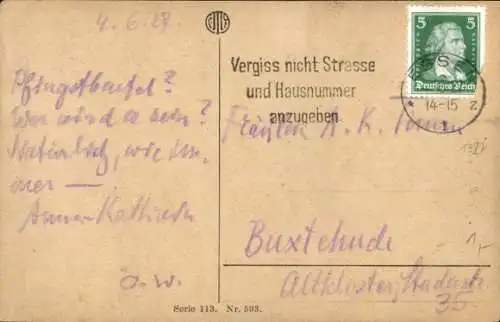 4. 6. 28.
Pfingstbautet?
Wer wird es sein?
Natürlich, wie im-
mer —
Anna-Kathrein
O. W.
Vergiss nicht Strasse
und Hausnummer
anzugeben
5 5
Deutsches Reich
ESSEN
* 14-15 Z
1
Fräulein A. K.
Buxtehude
Altkloster, Stader
35.
1,-
Serie 113. Nr. 593.